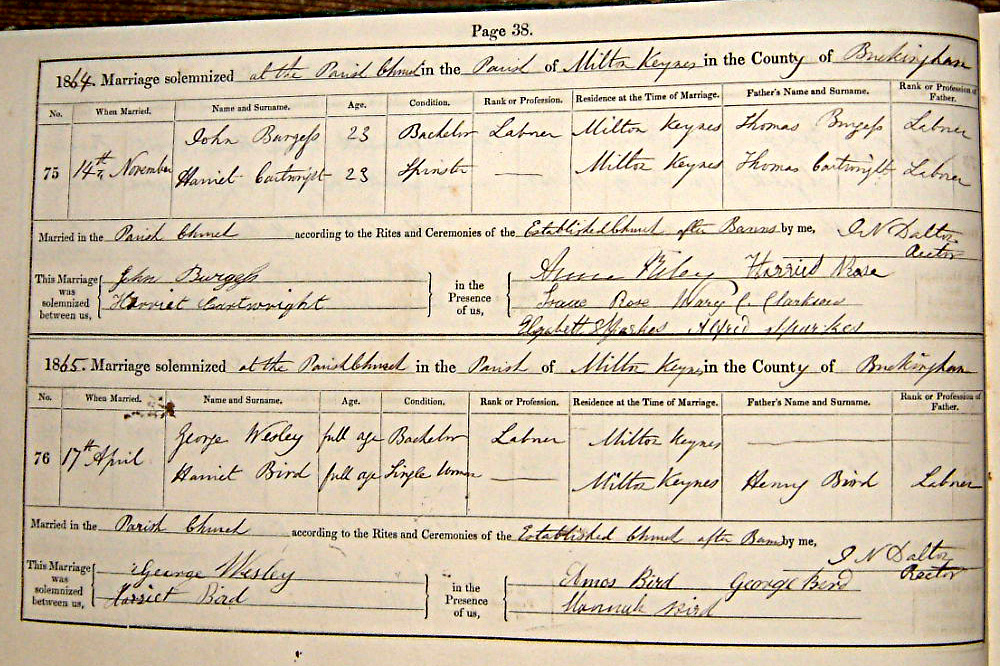 Page 38.
1864. Marriage solemnized at the Parish Church in the Parish of Milton Keynes in the County of Buckingham
No. When Married. Name and Surname. Age. Condition. Rank or Profession. Residence at the Time of Marriage. Father's Name and Surname. Rank or Profession of Father.
John Burgess 23 Bachelor Laborer Milton Keynes Thomas Burgess Laborer
75 14th November Harriet Cartwright 23 Spinster Milton Keynes Thomas Cartwright Laborer
Married in the Parish Church according to the Rites and Ceremonies of the Established Church after Banns by me, J N Dalton
Rector
This Marriage was solemnized between us, John Burgess
Harriet Cartwright
in the Presence of us, Harried Rose
Isaac Rose Mary C. Clarkson
Elizabeth Sparkes Alfred Sparkes
1865. Marriage solemnized at the Parish Church in the Parish of Milton Keynes in the County of Buckingham
No. When Married. Name and Surname. Age. Condition. Rank or Profession. Residence at the Time of Marriage. Father's Name and Surname. Rank or Profession of Father.
George Wesley full age Bachelor Laborer Milton Keynes
76 17th April Harriet Bird full age Single Woman Milton Keynes Henry Bird Laborer
Married in the Parish Church according to the Rites and Ceremonies of the Established Church after Banns by me, J N Dalton
Rector
This Marriage was solemnized between us, George Wesley
Harriet Bird
in the Presence of us, Amos Bird George Bird
Hannah Bird